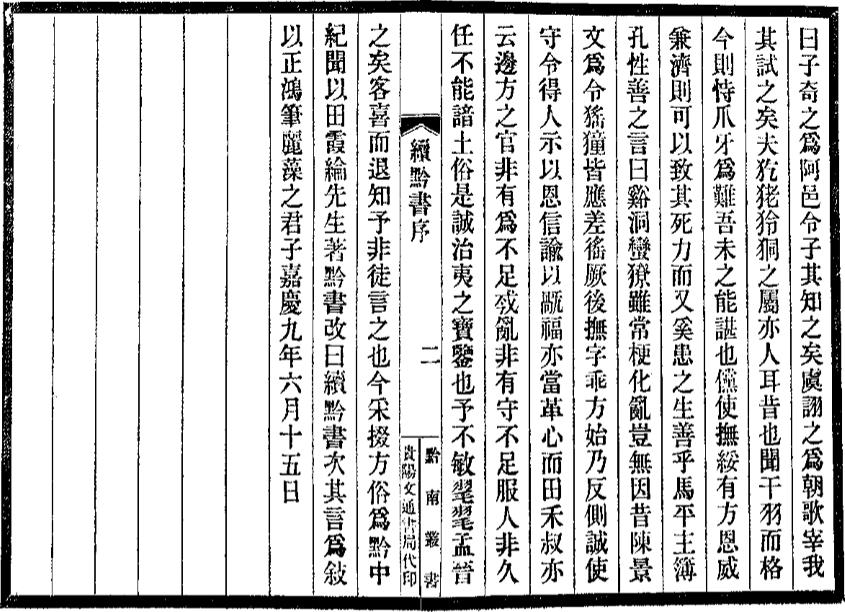 曰子奇之爲阿邑令子其知之矣虞詡之爲朝歌宰我
其試之矣夫犵狫狑狪之屬亦人耳昔也聞干羽而格
今則恃爪牙爲難吾未之能諶也儻使撫綏有方恩威
兼濟則可以致其死力而又奚患之生善乎馬平主簿
孔性善之言曰谿洞蠻獠雖常梗化亂豈無因昔陳景
文爲令猺獞皆應差徭厥後撫字乖方始乃反側誠使
守令得人示以恩信諭以禍福亦當革心而田禾叔亦
云邊方之官非有爲不足戡亂非有守不足服人非久
任不能諳土俗是誠治夷之寶鑒也予不敏
續黔書序
二
黔南叢書
貴陽文通書局代印
之矣客喜而退知予非徒言之也今采掇方俗爲黔中
紀聞以田霞綸先生著黔書改曰續黔書次其言爲敍
以正鴻筆麗藻之君子嘉慶九年六月十五日